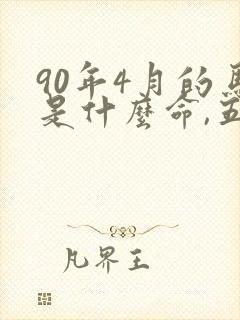 90年4月的
是什麼命,五
凡界王